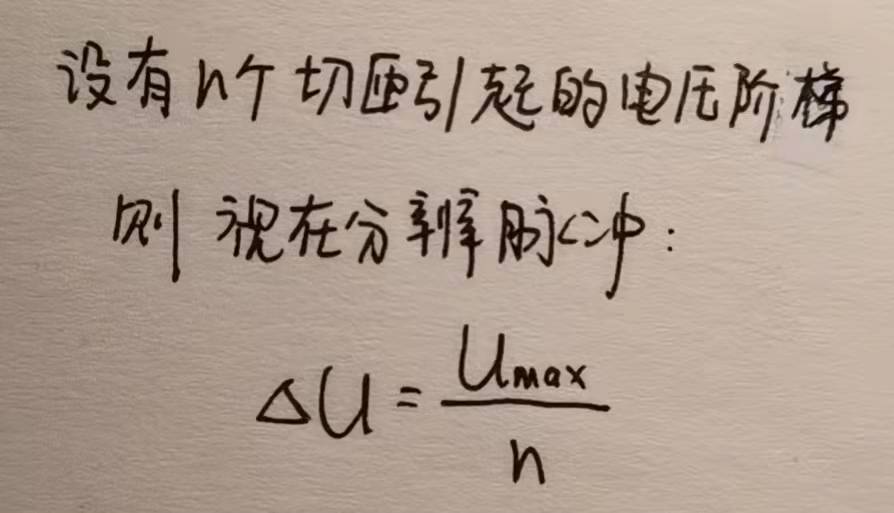 设有n个切匝引起的电压阶梯
则视在分辨脉冲:
ΔU = Umax / n